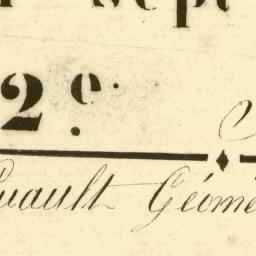 sept
2e.
uault Géomè